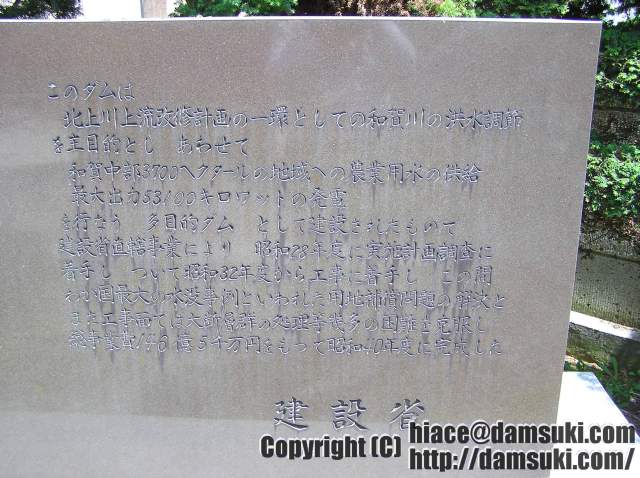 このダムは
北上川上流改修計画の一環としての和賀川の洪水調節
を主目的とし あわせて
和賀中部3700ヘクタールの地域への農業用水の供給
最大出力53100キロワットの発電
を行なう 多目的ダム として建設されたもので
建設省直轄事業により 昭和28年度に実施計画調査に
着手し ついで昭和32年度から工事に着手し この間
わが国最大の水没事例といわれた用地補償問題の解決と
また工事面では大断層群の処理等幾多の困難を克服し
総事業費146億5千万円をもって昭和40年度に完成した
建設省
Copyright (C) hiace@damsuki.com
http://damsuki.com/